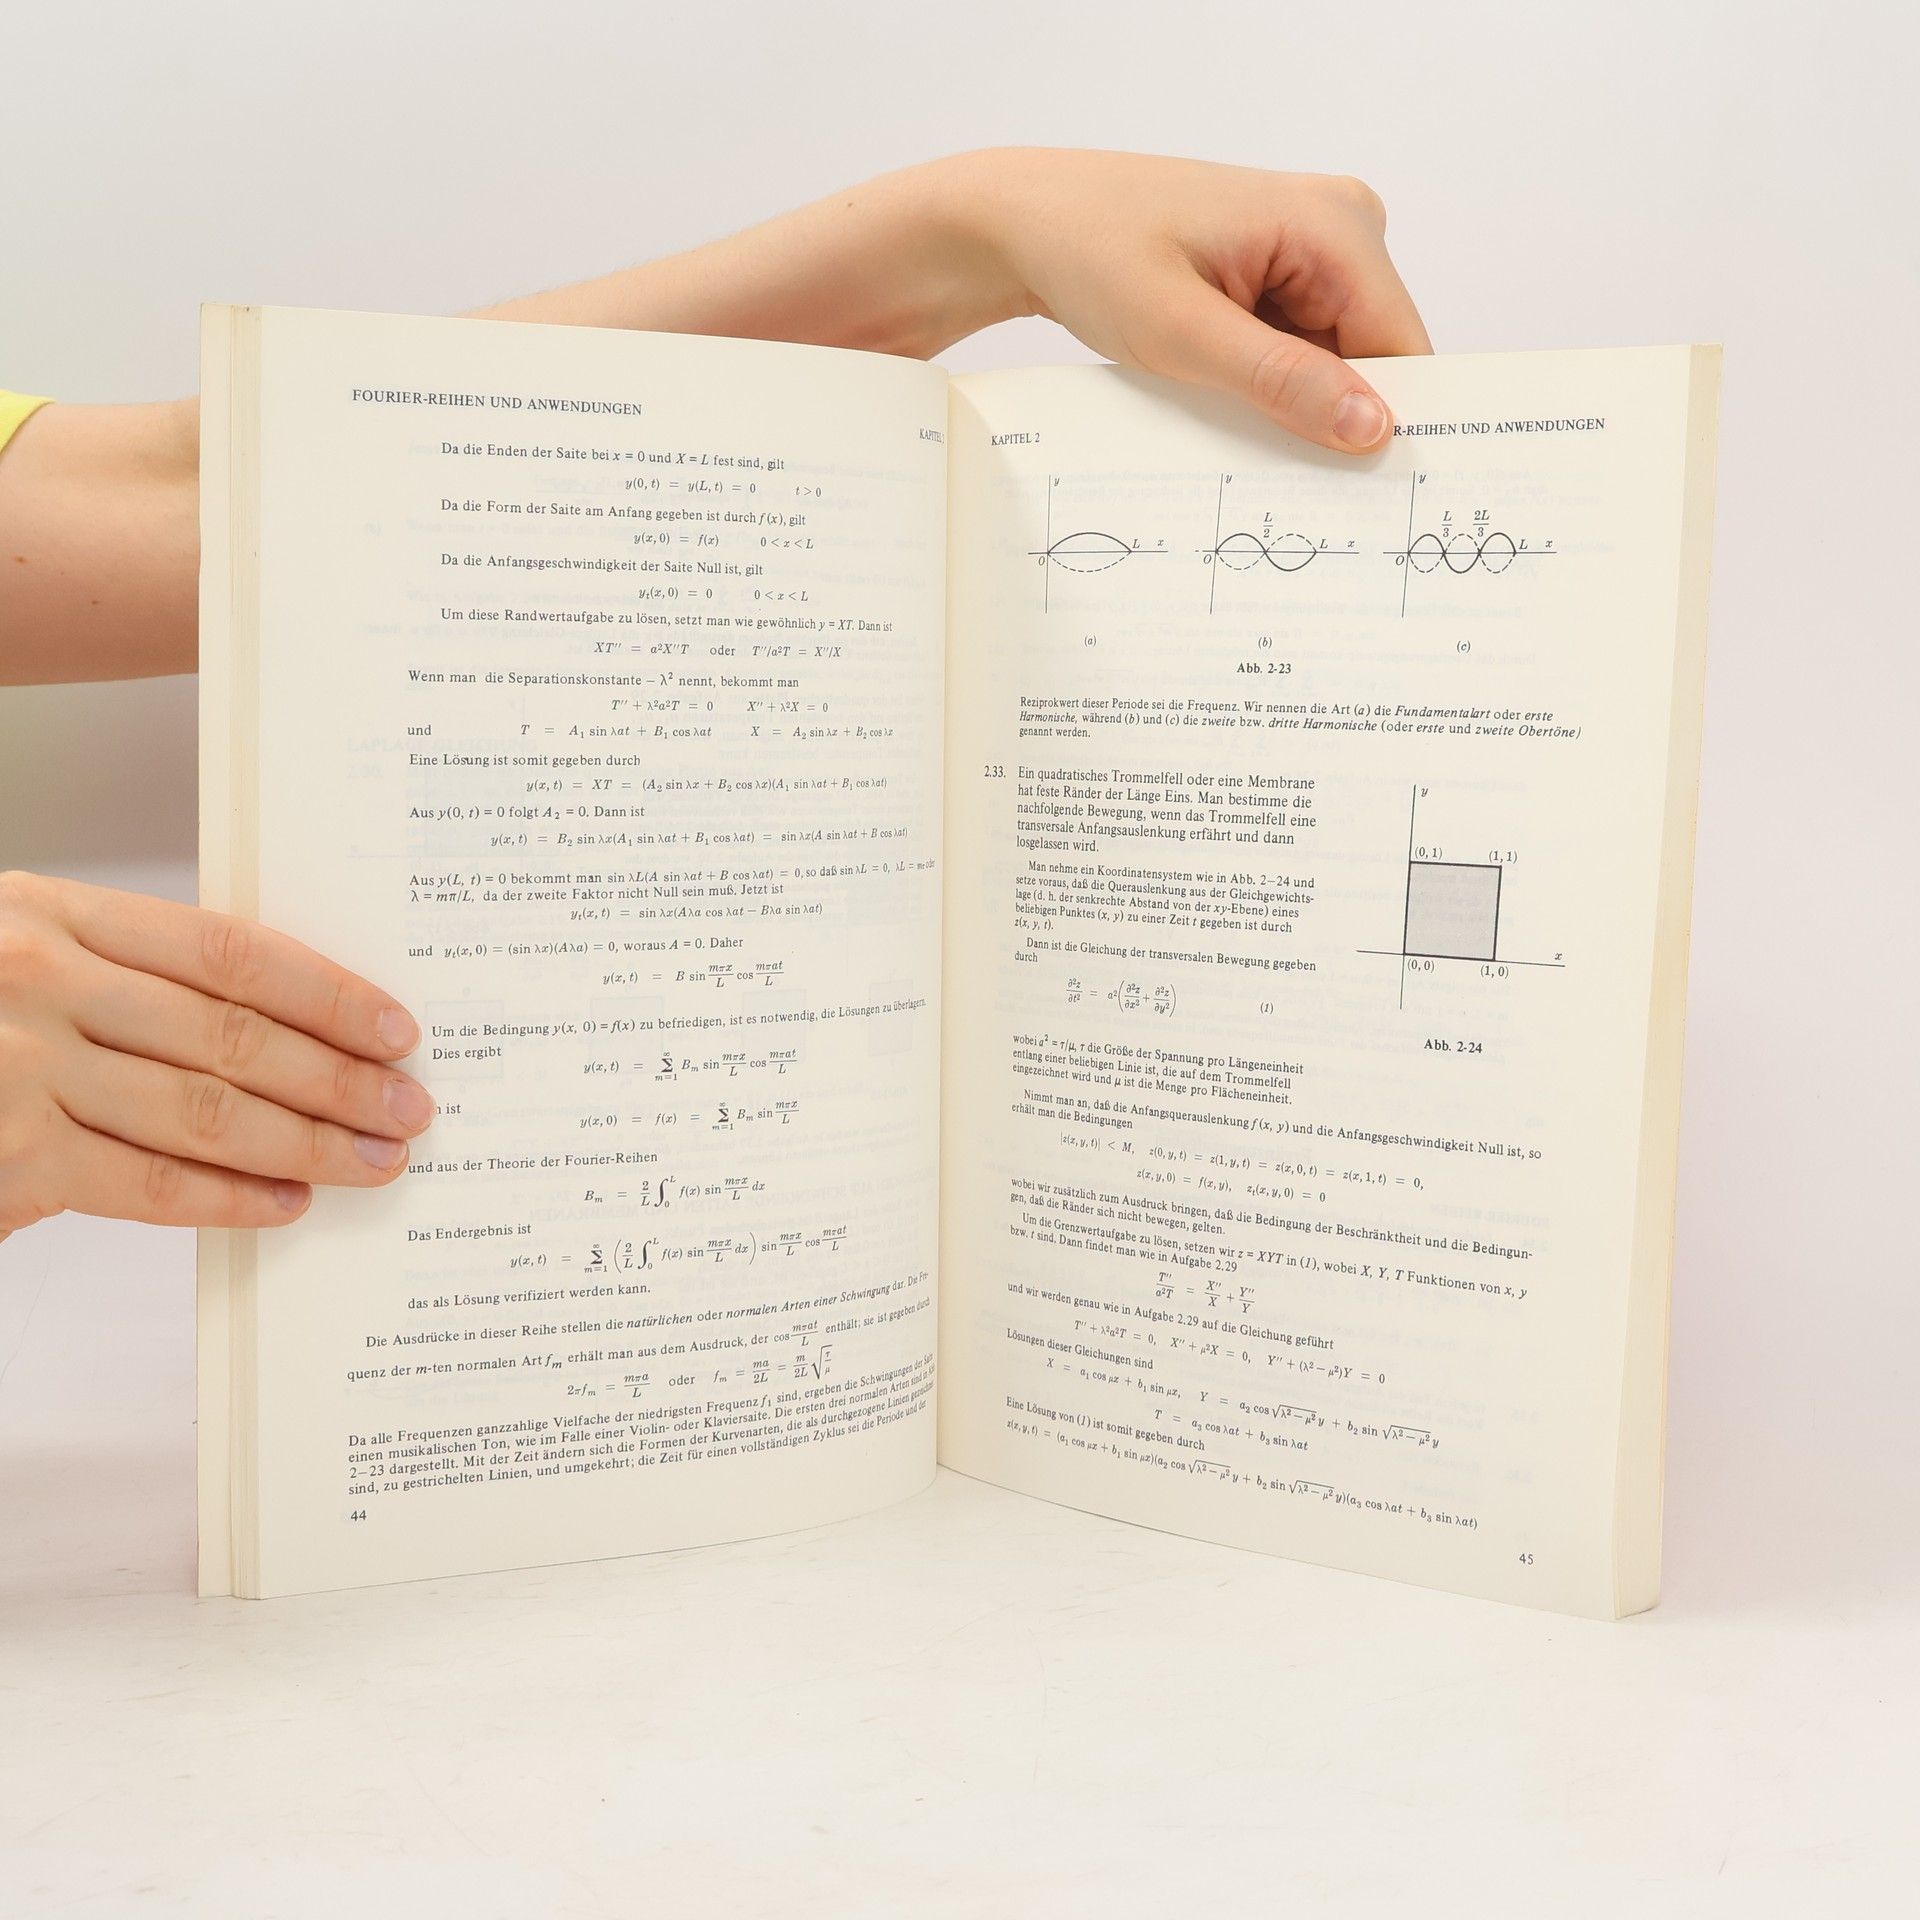 FOURIER-REIHEN UND ANWENDUNGEN
KAPITEL
Da die Enden der Saite bei x = 0 und X = L fest sind, gilt
y(0, t) = y(L, t) = 0 t > 0
Da die Form der Saite am Anfang gegeben ist durch f(x), gilt
y(x, 0) = f(x) 0 < x < L
Da die Anfangsgeschwindigkeit der Saite Null ist, gilt
yₜ(x, 0) = 0 0 < x < L
Um diese Randwertaufgabe zu lösen, setzt man wie gewöhnlich y = XT. Dann ist
XT'' = a²X''T oder T''/a²T = X''/X
Wenn man die Separationskonstante – λ² nennt, bekommt man
T'' + λ²a²T = 0 X'' + λ²X = 0
und T = A₁ sin λat + B₁ cos λat X = A₂ sin λx + B₂ cos λx
Eine Lösung ist somit gegeben durch
y(x, t) = XT = (A₂ sin λx + B₂ cos λx)(A₁ sin λat + B₁ cos λat)
Aus y(0, t) = 0 folgt A₂ = 0. Dann ist
y(x, t) = B₂ sin λx(A₁ sin λat + B₁ cos λat) = sin λx(A sin λat + B cos λat)
Aus y(L, t) = 0 bekommt man sin λL(A sin λat + B cos λat) = 0, so daß sin λL = 0, λL = mπ oder
λ = mπ/L, da der zweite Faktor nicht Null sein muß. Jetzt ist
yₜ(x, t) = sin λx(Aλa cos λat – Bλa sin λat)
und yₜ(x, 0) = (sin λx)(Aλa) = 0, woraus A = 0. Daher
y(x, t) = B sin mπx/L cos mπat/L
Um die Bedingung y(x, 0) = f(x) zu befriedigen, ist es notwendig, die Lösungen zu überlagern.
Dies ergibt
y(x, t) = ∑_{m=1}^{∞} Bₘ sin mπx/L cos mπat/L
ist
y(x, 0) = f(x) = ∑_{m=1}^{∞} Bₘ sin mπx/L
und aus der Theorie der Fourier-Reihen
Bₘ = 2/L ∫₀ᴸ f(x) sin mπx/L dx
Das Endergebnis ist
y(x, t) = ∑_{m=1}^{∞} (2/L ∫₀ᴸ f(x) sin mπx/L dx) sin mπx/L cos mπat/L
das als Lösung verifiziert werden kann.
Die Ausdrücke in dieser Reihe stellen die natürlichen oder normalen Arten einer Schwingung dar. Die Fre-
quenz der m-ten normalen Art fₘ erhält man aus dem Ausdruck, der cos mπat/L enthält; sie ist gegeben durch
2πfₘ = mπa/L oder fₘ = ma/2L = m/2L √(τ/μ)
Da alle Frequenzen ganzzahlige Vielfache der niedrigsten Frequenz f₁ sind, ergeben die Schwingungen der Saite
einen musikalischen Ton, wie im Falle einer Violin- oder Klaviersaite. Die ersten drei normalen Arten sind in
2–23 dargestellt. Mit der Zeit ändern sich die Formen der Kurvenarten, die als durchgezogene Linien gezeichnet
sind, zu gestrichelten Linien, und umgekehrt; die Zeit für einen vollständigen Zyklus sei die Periode und der
44
KAPITEL 2
R-REIHEN UND ANWENDUNGEN
y y y
L/2 L/3 2L/3
O L x O L x O L x
(a) (b) (c)
Abb. 2-23
Reziprokwert dieser Periode sei die Frequenz. Wir nennen die Art (a) die Fundamentalart oder erste
Harmonische, während (b) und (c) die zweite bzw. dritte Harmonische (oder erste und zweite Obertöne)
genannt werden.
2.33. Ein quadratisches Trommelfell oder eine Membrane
hat feste Ränder der Länge Eins. Man bestimme die
nachfolgende Bewegung, wenn das Trommelfell eine
transversale Anfangsauslenkung erfährt und dann
losgelassen wird.
Man nehme ein Koordinatensystem wie in Abb. 2–24 und
setze voraus, daß die Querauslenkung aus der Gleichgewichts-
lage (d. h. der senkrechte Abstand von der xy-Ebene) eines
beliebigen Punktes (x, y) zu einer Zeit t gegeben ist durch
z(x, y, t).
Dann ist die Gleichung der transversalen Bewegung gegeben
durch
∂²z/∂t² = a²(∂²z/∂x² + ∂²z/∂y²) (1)
y
(0, 1) (1, 1)
x
(0, 0) (1, 0)
Abb. 2-24
wobei a² = τ/μ, τ die Größe der Spannung pro Längeneinheit
entlang einer beliebigen Linie ist, die auf dem Trommelfell
eingezeichnet wird und μ ist die Menge pro Flächeneinheit.
Nimmt man an, daß die Anfangsquerauslenkung f(x, y) und die Anfangsgeschwindigkeit Null ist, so
erhält man die Bedingungen
|z(x, y, t)| < M, z(0, y, t) = z(1, y, t) = z(x, 0, t) = z(x, 1, t) = 0,
z(x, y, 0) = f(x, y), zₜ(x, y, 0) = 0
wobei wir zusätzlich zum Ausdruck bringen, daß die Bedingung der Beschränktheit und die Bedingun-
gen, daß die Ränder sich nicht bewegen, gelten.
Um die Grenzwertaufgabe zu lösen, setzen wir z = XYT in (1), wobei X, Y, T Funktionen von x, y
bzw. t sind. Dann findet man wie in Aufgabe 2.29
T''/a²T = X''/X + Y''/Y
und wir werden genau wie in Aufgabe 2.29 auf die Gleichung geführt
T'' + λ²a²T = 0, X'' + μ²X = 0, Y'' + (λ² – μ²)Y = 0
Lösungen dieser Gleichungen sind
X = a₁ cos μx + b₁ sin μx, Y = a₂ cos √(λ² – μ²) y + b₂ sin √(λ² – μ²) y
T = a₃ cos λat + b₃ sin λat
Eine Lösung von (1) ist somit gegeben durch
z(x, y, t) = (a₁ cos μx + b₁ sin μx)(a₂ cos √(λ² – μ²) y + b₂ sin √(λ² – μ²) y)(a₃ cos λat + b₃ sin λat)
45